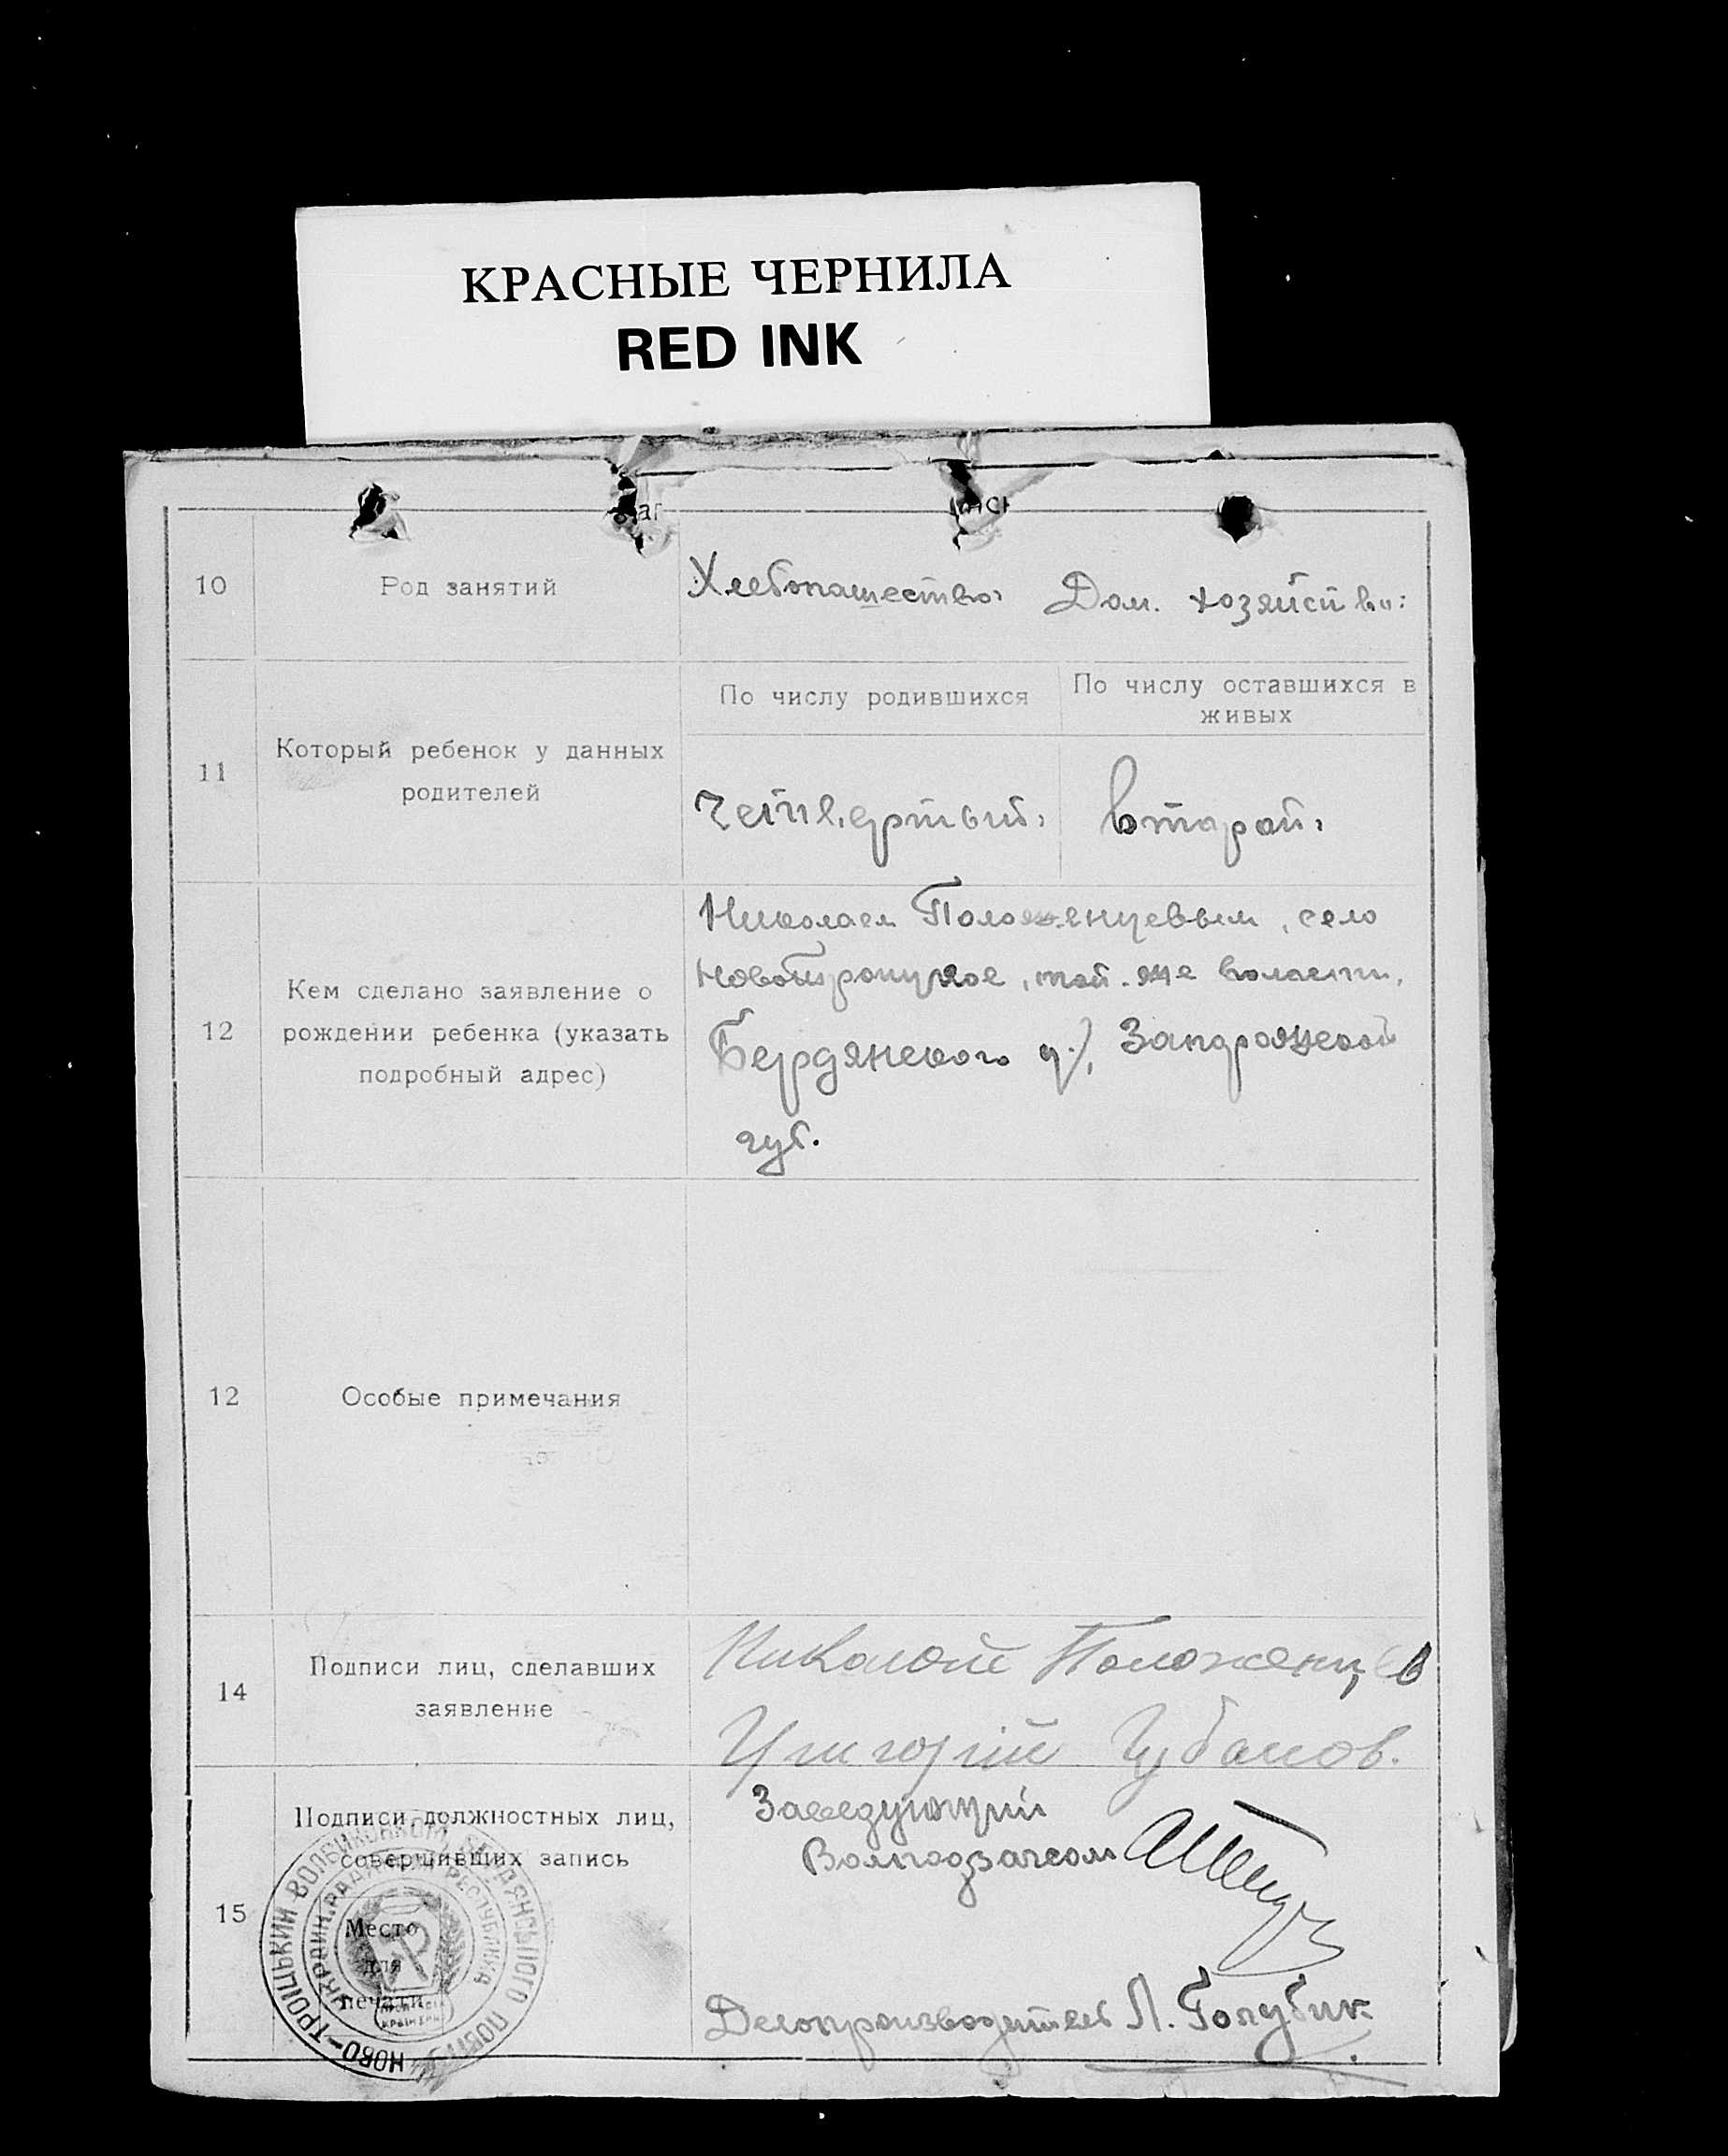 КРАСНЫЕ ЧЕРНИЛА
RED INK
10
Род занятий
Хлебопашество:
Дом. хозяйство:
11
Который ребенок у данных
родителей
По числу родившихся
По числу оставшихся в
живых
Четвертый:
второй:
12
Кем сделано заявление о
рождении ребенка (указать
подробный адрес)
Николаем Положенцевым, село
Новотроицкое, той-же волости,
Бердянского у., Запорожской
губ.
12
Особые примечания
14
Подписи лиц, сделавших
заявление
Николай Положенцев
Григорій Губанов.
15
Подписи должностных лиц,
совершивших запись
Место
для
печати
Заведующий
Волподзагсом
Делопроизводитель Л. Голубик
НОВО-ТРОЇЦЬКИЙ ВОЛВИКОНКОМ БЕРДЯНСЬКОГО ПОВІТУ
УКРАИН. РАДЯН. РЕСПУБЛИКА